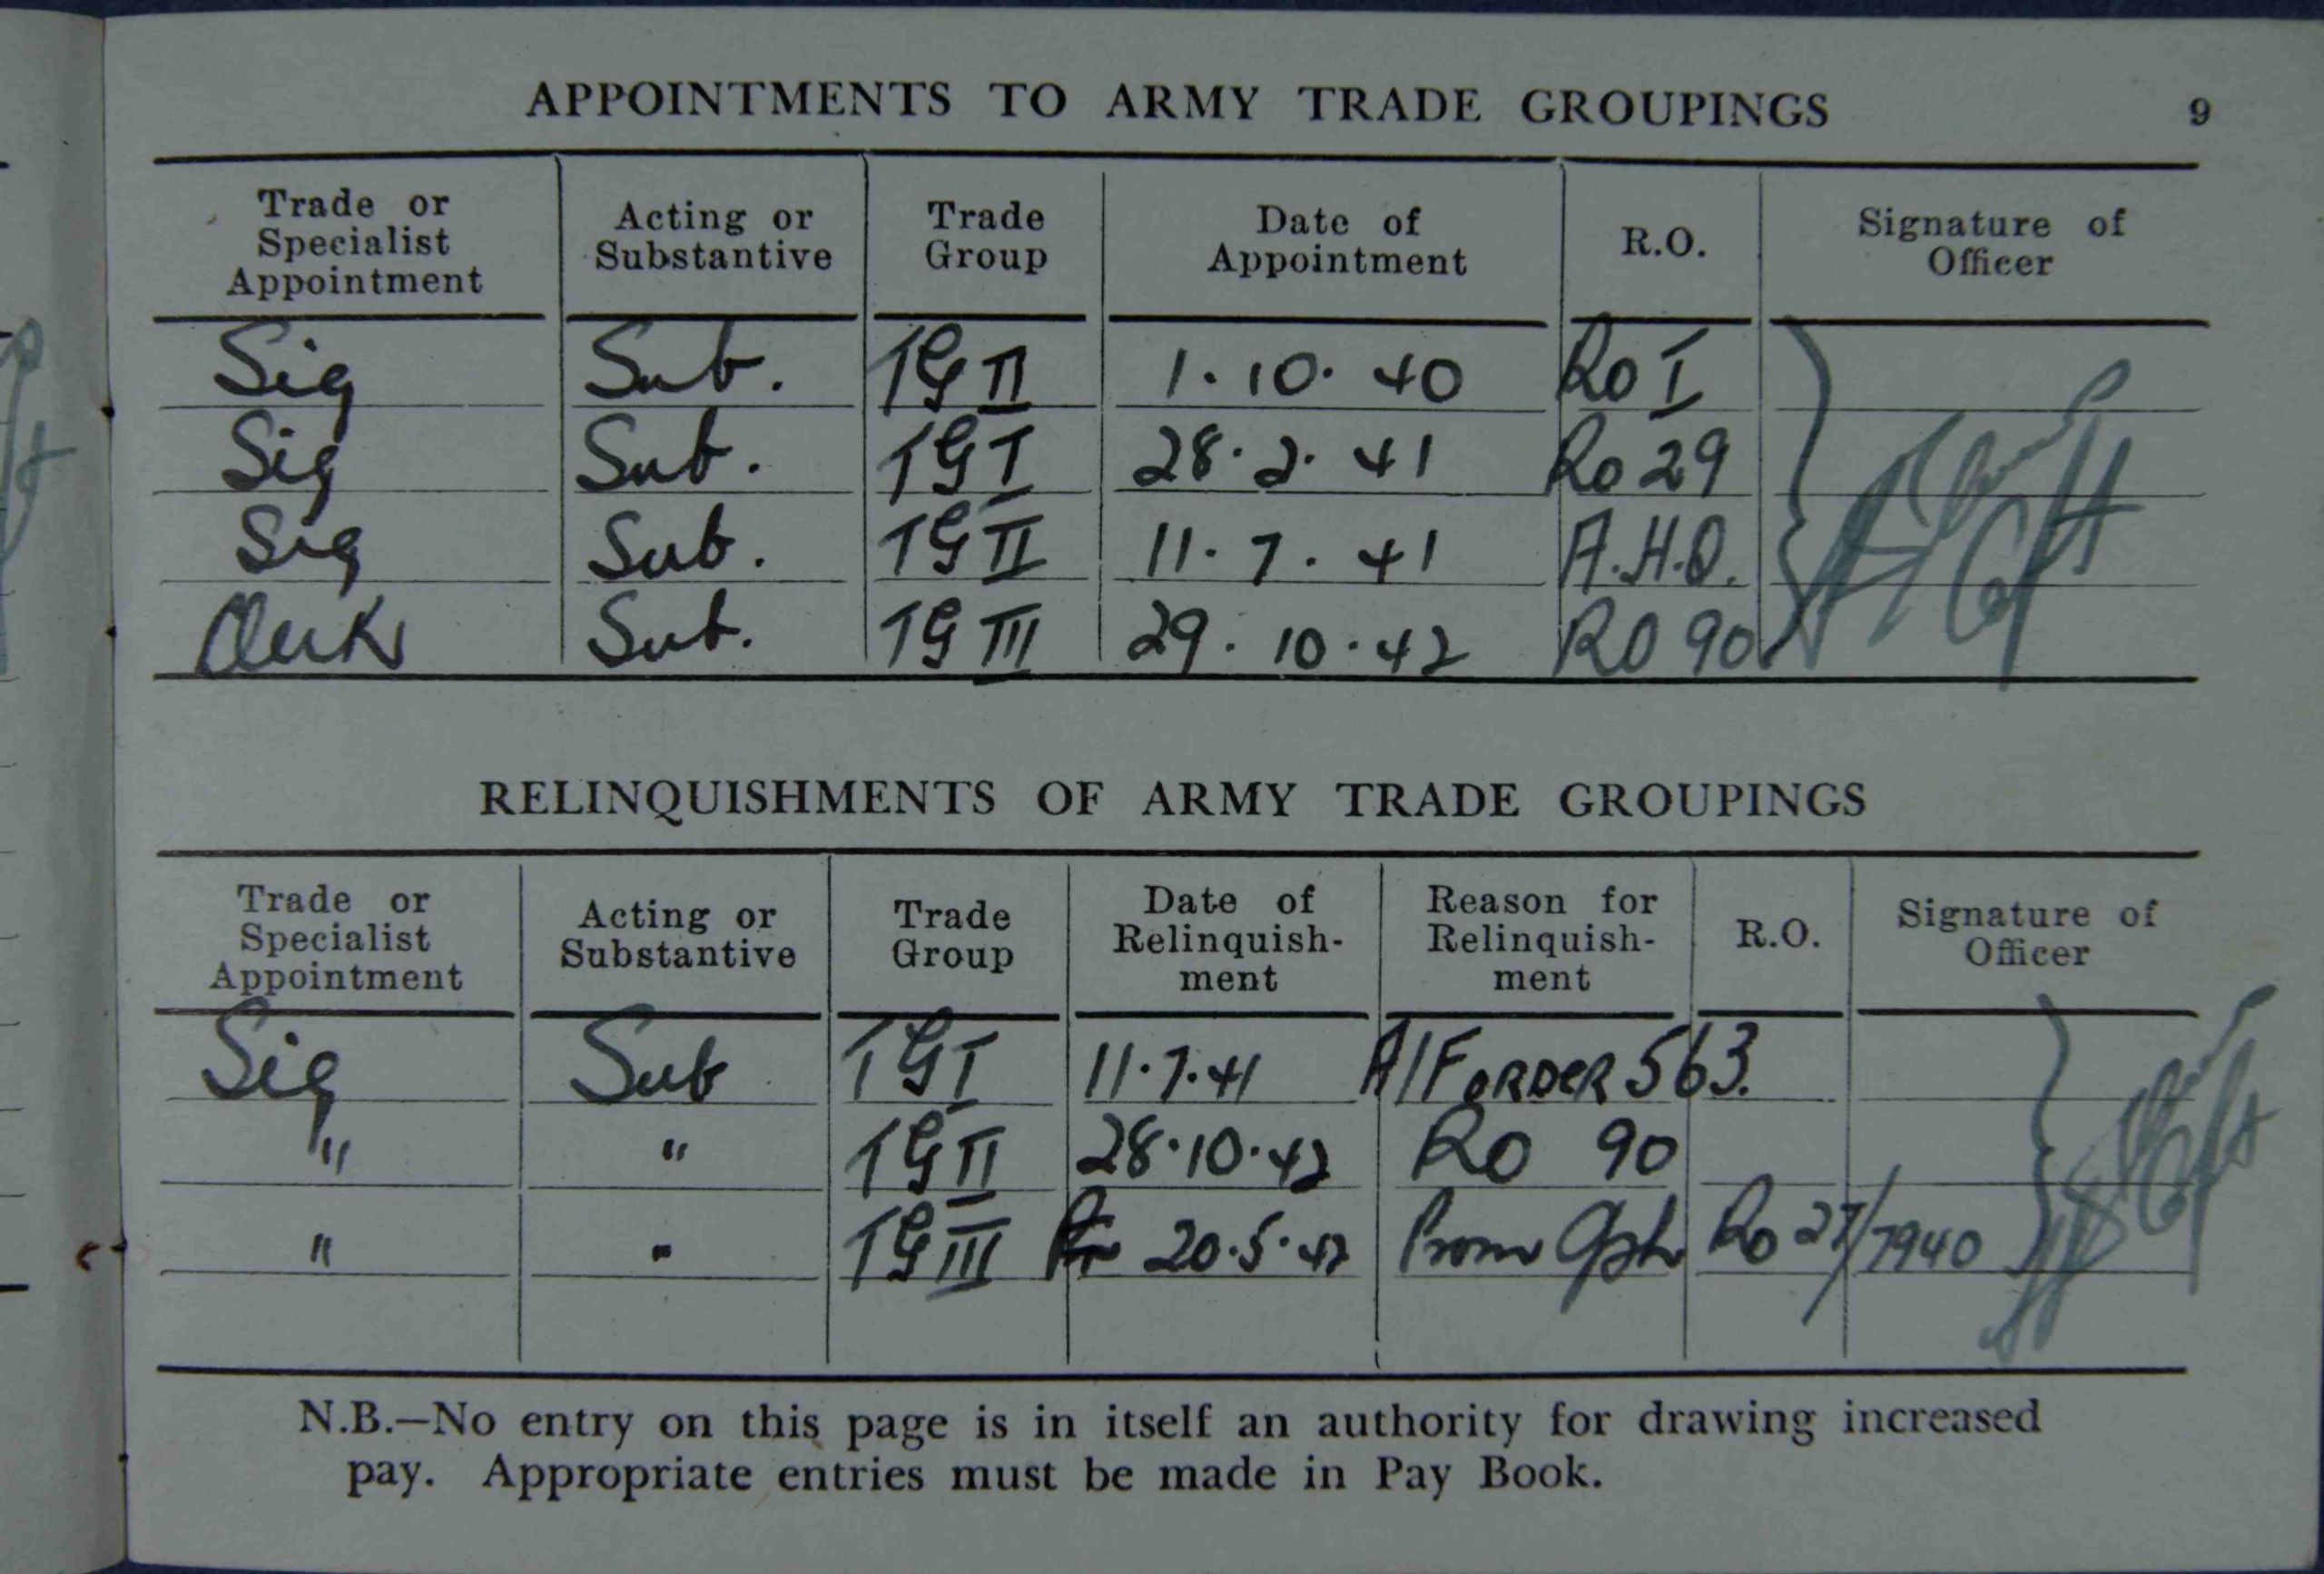 APPOINTMENTS TO ARMY TRADE GROUPINGS 9
Trade or Specialist Appointment | Acting or Substantive | Trade Group | Date of Appointment | R.O. | Signature of Officer
Sig Sub. TG II 1.10.40 Ro I
Sig Sub. TG I 28.2.41 Ro 29
Sig Sub. TG II 11.7.41 A.H.Q.
Clerk Sub. TG III 29.10.42 RO 90
RELINQUISHMENTS OF ARMY TRADE GROUPINGS
Trade or Specialist Appointment | Acting or Substantive | Trade Group | Date of Relinquish-ment | Reason for Relinquish-ment | R.O. | Signature of Officer
Sig Sub TG I 11.7.41 AIF ORDER 563.
" " TG II 28.10.42 Ro 90
" " TG III 20.5.43 Prom Ro 27/7940
N.B.—No entry on this page is in itself an authority for drawing increased
pay. Appropriate entries must be made in Pay Book.